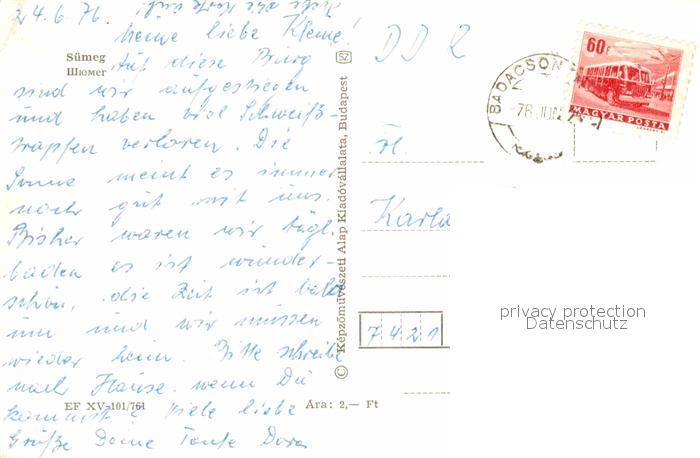 24.6.76.
Meine liebe Kleine!
Sümeg
Шюмег
Auf diese Burg
sind wir aufgestiegen
und haben viel Schweiß-
tropfen verloren. Die
Sonne meint es immer
noch gut mit uns.
Bisher waren wir tägl.
baden es ist wunder-
schön. die Zeit ist bald
um und wir müssen
wieder heim. Bitte schreibe
nach Hause. wenn Du
kommst. Viele liebe
Grüße Deine Tante Dora
EF XV-101/761
Ára: 2,— Ft
© Képzőművészeti Alap Kiadóvállalata, Budapest
SZ
DDR
Frl.
Karla
7421
BADACSON
-76.JUN
60f
MAGYAR POSTA
privacy protection
Datenschutz